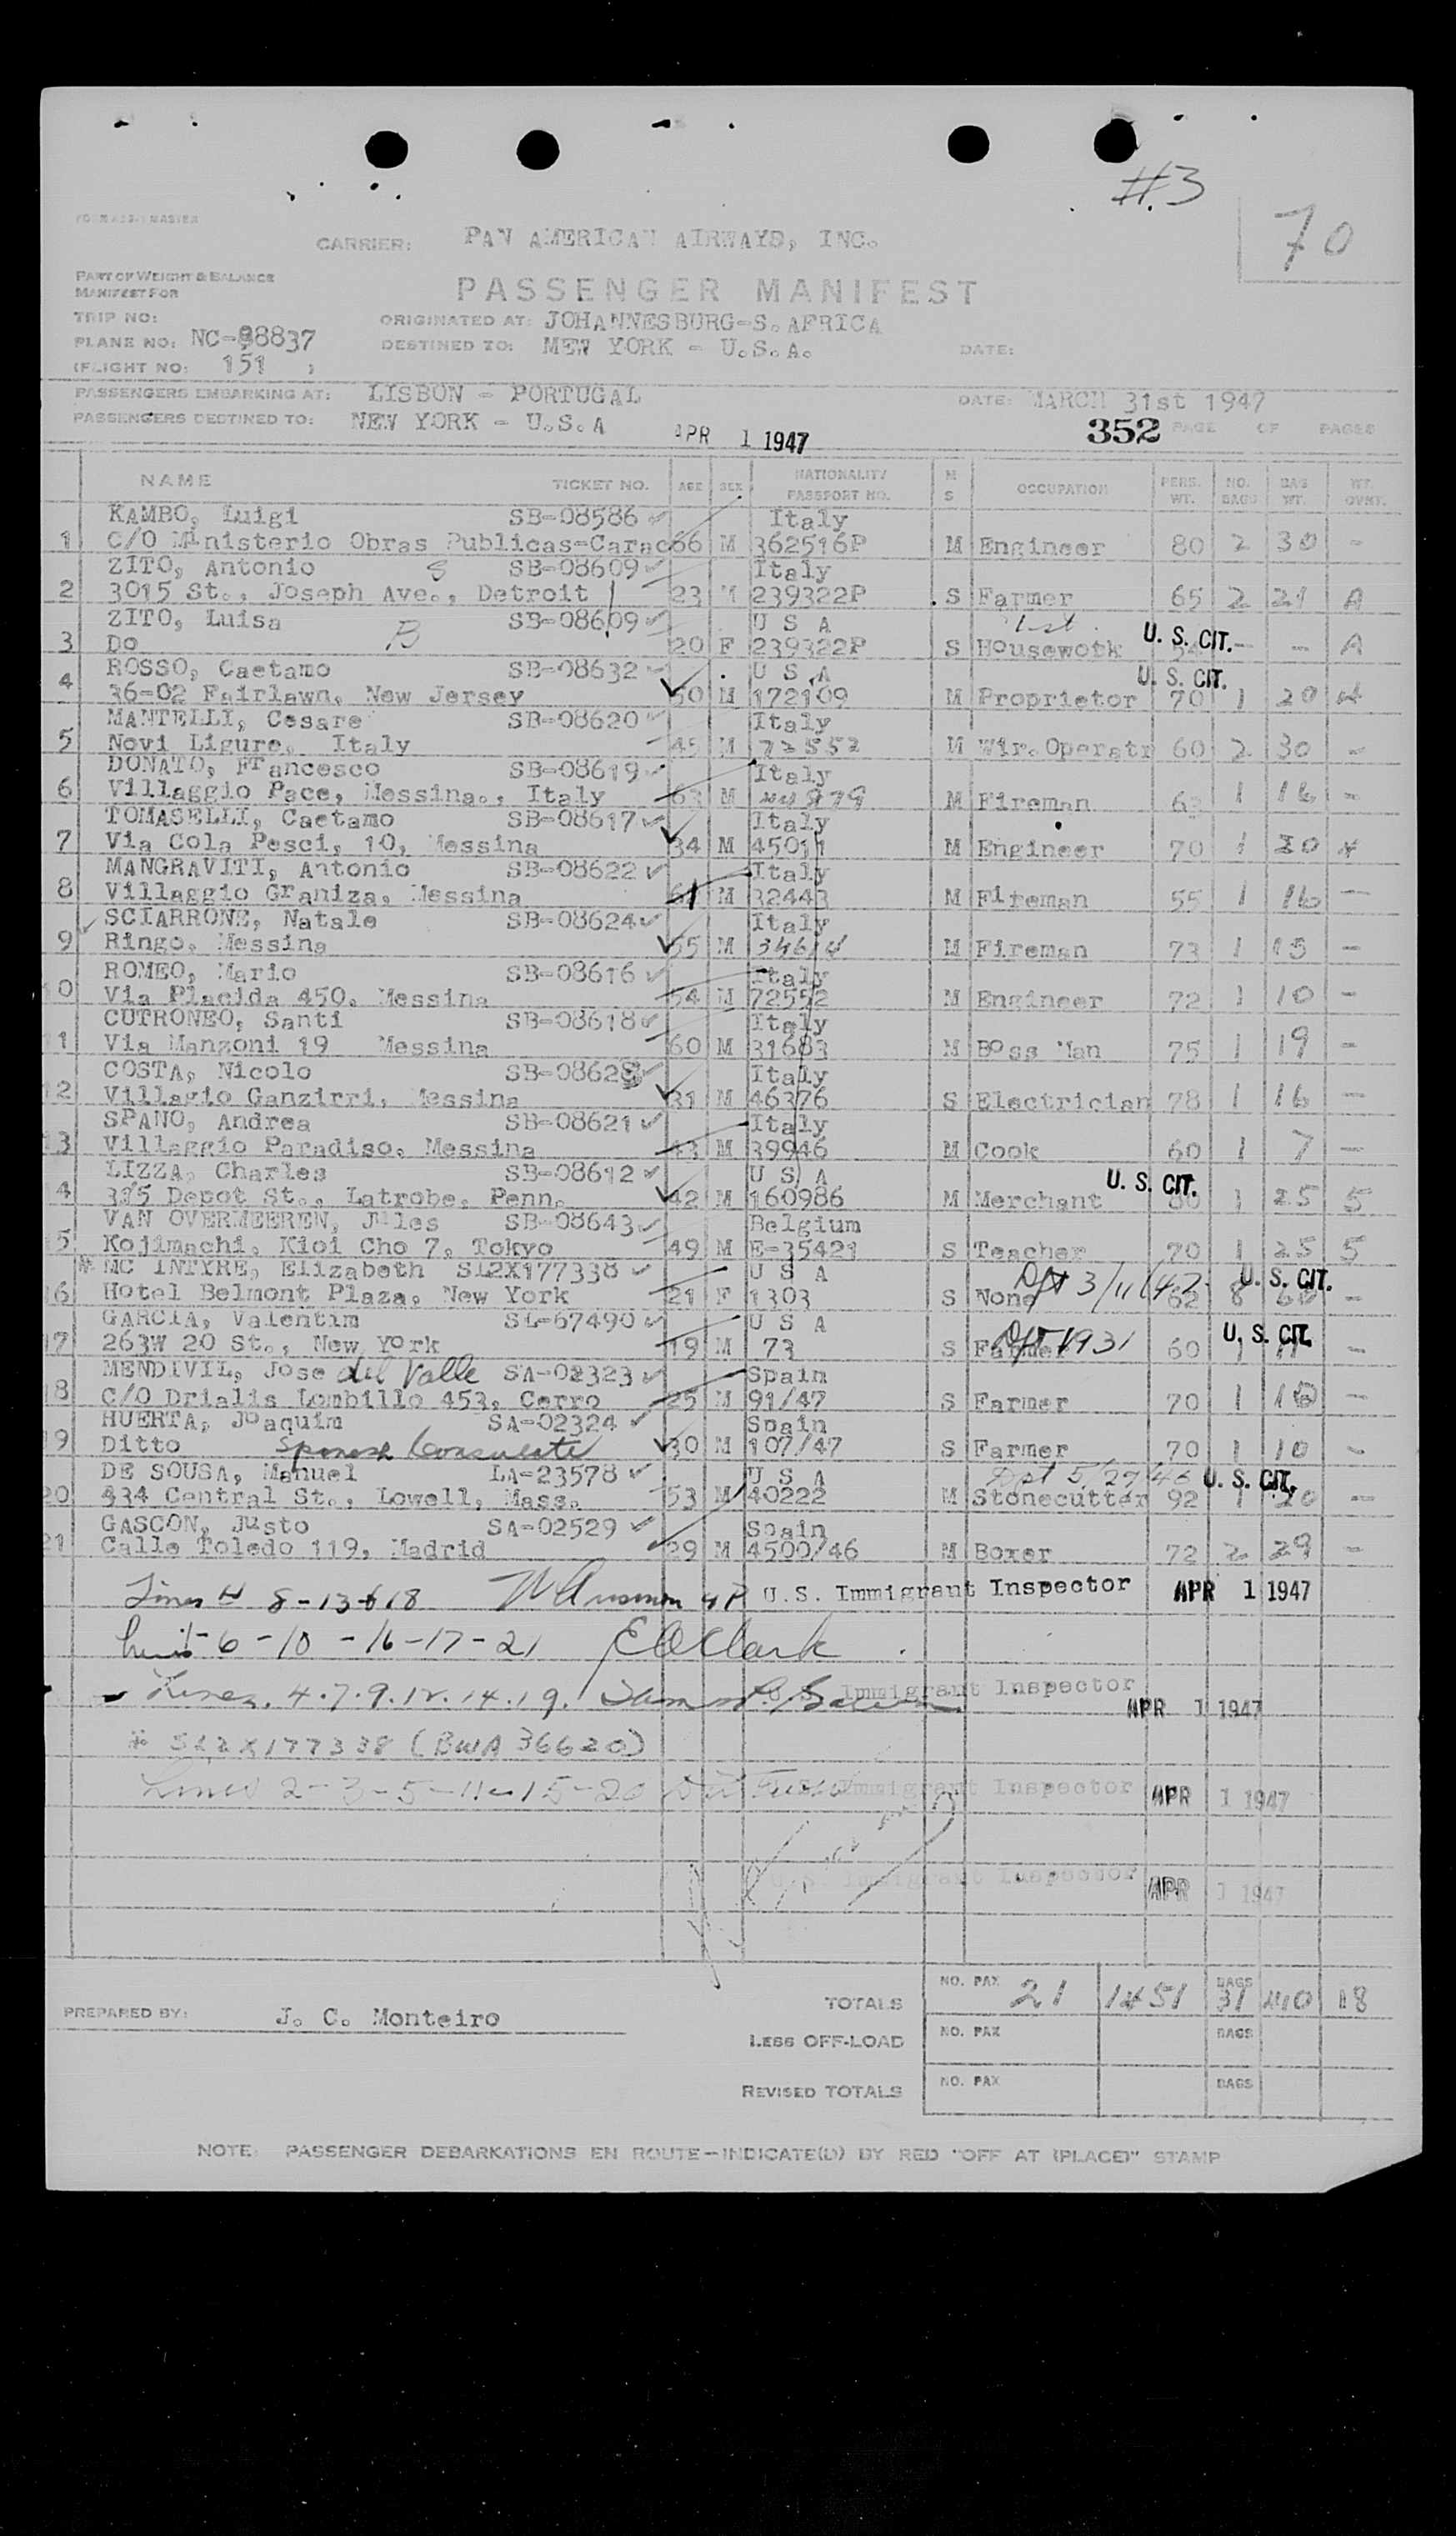 #3
70
CARRIER: PAN AMERICAN AIRWAYS, INC.
PART OF WEIGHT & BALANCE
MANIFEST FOR
PASSENGER MANIFEST
TRIP NO:
ORIGINATED AT: JOHANNESBURG-S. AFRICA
PLANE NO: NC-88837
DESTINED TO: NEW YORK - U.S.A.
DATE:
(FLIGHT NO: 151 )
PASSENGERS EMBARKING AT: LISBON - PORTUGAL
DATE: MARCH 31st 1947
PASSENGERS DESTINED TO: NEW YORK - U.S.A
APR 1 1947
352 PAGE OF PAGES
NAME TICKET NO. AGE SEX NATIONALITY PASSPORT NO. M S OCCUPATION PERS. WT. NO. BAGS BAG WT. WT. OVHT.
KAMBO, Luigi SB-08586 Italy
1 C/O Ministerio Obras Publicas-Carac 66 M 362516P M Engineer 80 2 30 -
ZITO, Antonio S SB-08609 Italy
2 3015 St., Joseph Ave., Detroit 23 M 239322P S Farmer 65 2 21 A
ZITO, Luisa SB-08609 U S A
3 Do B 20 F 239322P S Housework U. S. CIT. - - A
ROSSO, Caetamo SB-08632 U S A U. S. CIT.
4 36-02 Fairlawn, New Jersey 50 M 172109 M Proprietor 70 1 20
MANTELLI, Cesare SB-08620 Italy
5 Novi Ligure, Italy 45 M 72552 M Wir.Operatr 60 2 30 -
DONATO, Francesco SB-08619 Italy
6 Villaggio Pace, Messina., Italy 63 M M Fireman 1 16 -
TOMASELLI, Caetamo SB-08617 Italy
7 Via Cola Pesci, 10, Messina 34 M 45011 M Engineer 70 1 20
MANGRAVITI, Antonio SB-08622 Italy
8 Villaggio Graniza, Messina 61 M 32443 M Fireman 55 1 16 -
SCIARRONE, Natale SB-08624 Italy
9 Ringo, Messina 55 M 34614 M Fireman 73 1 15 -
ROMEO, Mario SB-08616 Italy
10 Via Placida 450, Messina 54 M 72552 M Engineer 72 1 10 -
CUTRONEO, Santi SB-08618 Italy
11 Via Manzoni 19 Messina 60 M 31683 M Boss Man 75 1 19 -
COSTA, Nicolo SB-08628 Italy
12 Villagio Ganzirri, Messina 31 M 46376 S Electrician 78 1 16 -
SPANO, Andrea SB-08621 Italy
13 Villaggio Paradiso, Messina 43 M 39946 M Cook 60 1 7 -
LIZZA, Charles SB-08612 U S A U. S. CIT.
14 315 Depot St., Latrobe, Penn. 42 M 160986 M Merchant 1 25 5
VAN OVERMEEREN, Jules SB-08643 Belgium
15 Kojimachi, Kioi Cho 7, Tokyo 49 M E-35421 S Teacher 70 1 25 5
* MC INTYRE, Elizabeth SL2X177338 U S A Dpt 3/11/47 U. S. CIT.
16 Hotel Belmont Plaza, New York 21 F 1303 S None 62 8 60 -
GARCIA, Valentim SL-67490 U S A Dpt 1931 U. S. CIT.
17 263W 20 St., New York 19 M 73 S Farmer 60 1 11 -
MENDIVIL, Jose del Valle SA-02323 Spain
18 C/O Drialis Lombillo 453, Cerro 25 M 91/47 S Farmer 70 1 10 -
HUERTA, Joaquim SA-02324 Spain
19 Ditto Spanish Consulate 30 M 107/47 S Farmer 70 1 10 -
DE SOUSA, Manuel LA-23578 U S A Dpt 5/29/46 U. S. CIT.
20 434 Central St., Lowell, Mass. 53 M 40222 M Stonecutter 92 1 20 -
GASCON, Justo SA-02529 Spain
21 Calle Toledo 119, Madrid 29 M 4500/46 M Boxer 72 2 29 -
Lines 8-13-18 U.S. Immigrant Inspector APR 1 1947
Lines 1-6-10-16-17-21 E O Clark
Lines. 4.7.9.12.14.19. U.S. Immigrant Inspector APR 1 1947
* SL2X177338 (BWA 36620)
Lines 2-3-5-11-15-20 U.S. Immigrant Inspector APR 1 1947
U.S. Immigrant Inspector APR 1 1947
TOTALS NO. PAX 21 1451 BAGS 31 410 18
PREPARED BY: J. C. Monteiro
LESS OFF-LOAD NO. PAX BAGS
REVISED TOTALS NO. PAX BAGS
NOTE: PASSENGER DEBARKATIONS EN ROUTE-INDICATE(D) BY RED "OFF AT (PLACE)" STAMP